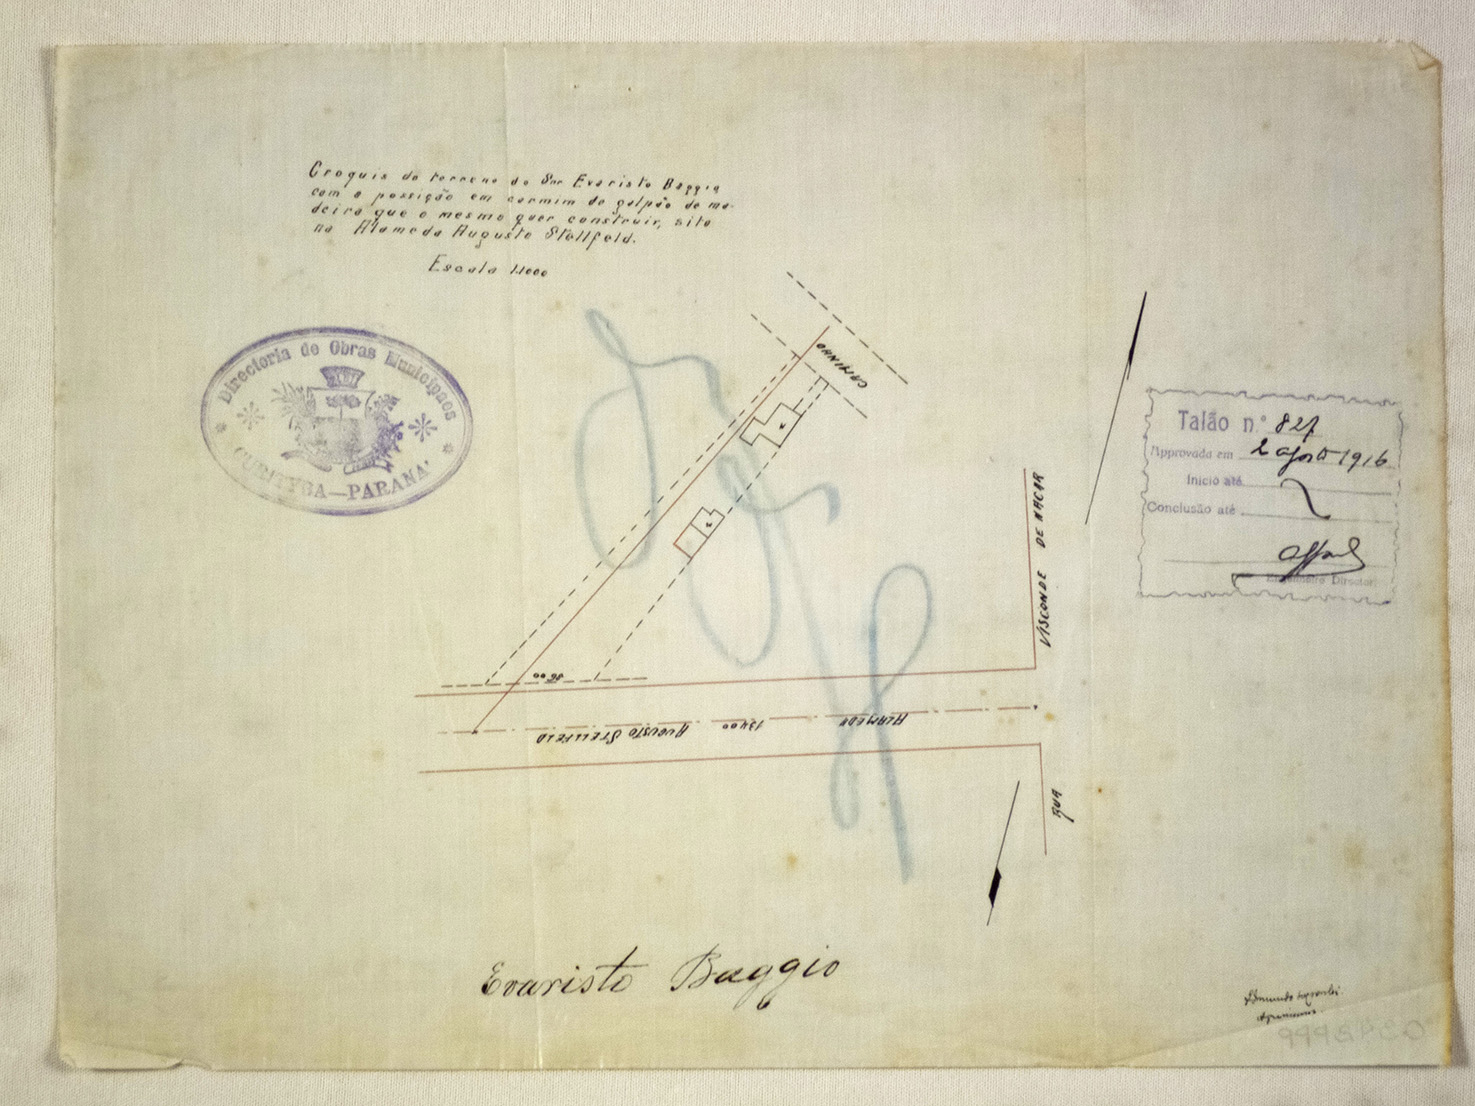 Croquis do terreno do Snr Evaristo Baggio
com a possição em carmim do galpão de ma-
deira que o mesmo quer construir, sito
na Alameda Augusto Stellfeld.
Escala 1:1000
Directoria de Obras Municipaes
CURITYBA—PARANÁ
CAMINHO
Talão n.º 827
Approvada em 2 agosto 1916
Inicio até
Conclusão até
Engenheiro Director
VISCONDE DE NACAR
36.00
ALAMEDA 134.00 AUGUSTO STELLFELD
RUA
Evaristo Baggio